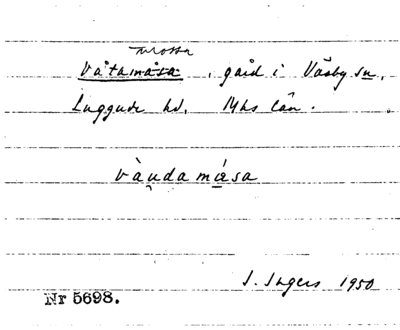 mossa
Våtamåsa, gård i Väsby sn,
Luggude hd. Mhs län.
và̯uda mása
I. Ingers 1950
Nr 5698.